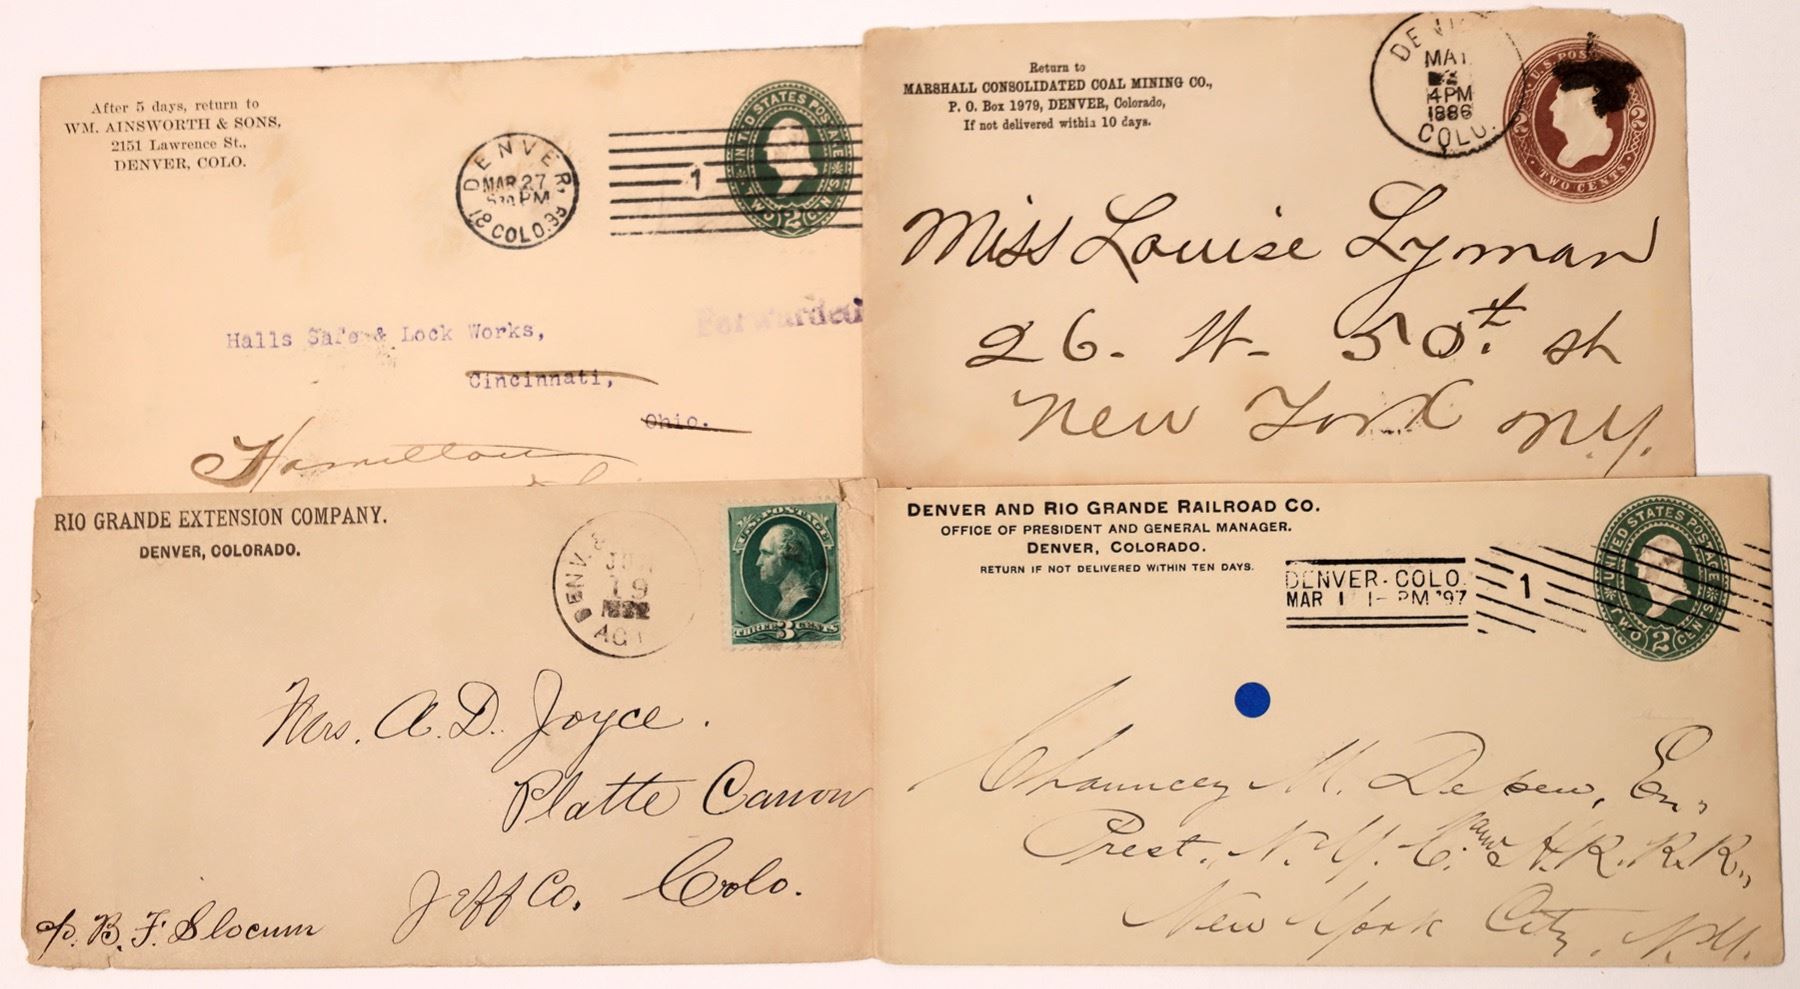 After 5 days, return to
WM. AINSWORTH & SONS,
2151 Lawrence St.,
DENVER, COLO.
DENVER,
MAR 27
PM
18 COLO. 99
1
UNITED STATES POSTAGE
TWO 2 CENTS
Halls Safe & Lock Works,
Forwarded
Cincinnati,
Ohio.
Hamilton
Return to
MARSHALL CONSOLIDATED COAL MINING CO.,
P. O. Box 1979, DENVER, Colorado,
If not delivered within 10 days.
MAY
4PM
1886
COLO.
U.S. POSTAGE
2 2
TWO CENTS
Miss Louise Lyman
26. W- 50th. st
New York N.Y.
RIO GRANDE EXTENSION COMPANY.
DENVER, COLORADO.
19
U.S. POSTAGE
THREE 3 CENTS
Mrs. A. D. Joyce.
Platte Canon
Jeff Co, Colo.
p. B. F. Slocum
DENVER AND RIO GRANDE RAILROAD CO.
OFFICE OF PRESIDENT AND GENERAL MANAGER.
DENVER, COLORADO.
RETURN IF NOT DELIVERED WITHIN TEN DAYS.
DENVER-COLO.
MAR 1 1- PM '97
1
UNITED STATES POSTAGE
TWO 2 CENTS
Chauncey M. Depew,
Prest. N. Y. C. and H. R. R. R.,
New York City, N.Y.